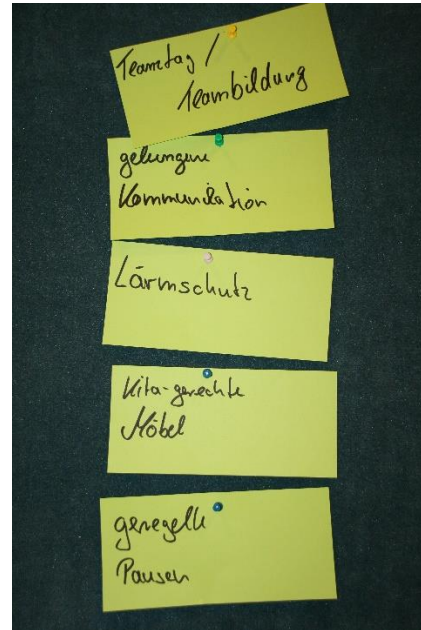 Teamtag /
Teambildung
gelungene
Kommunikation
Lärmschutz
Kita-gerechte
Möbel
geregelte
Pausen